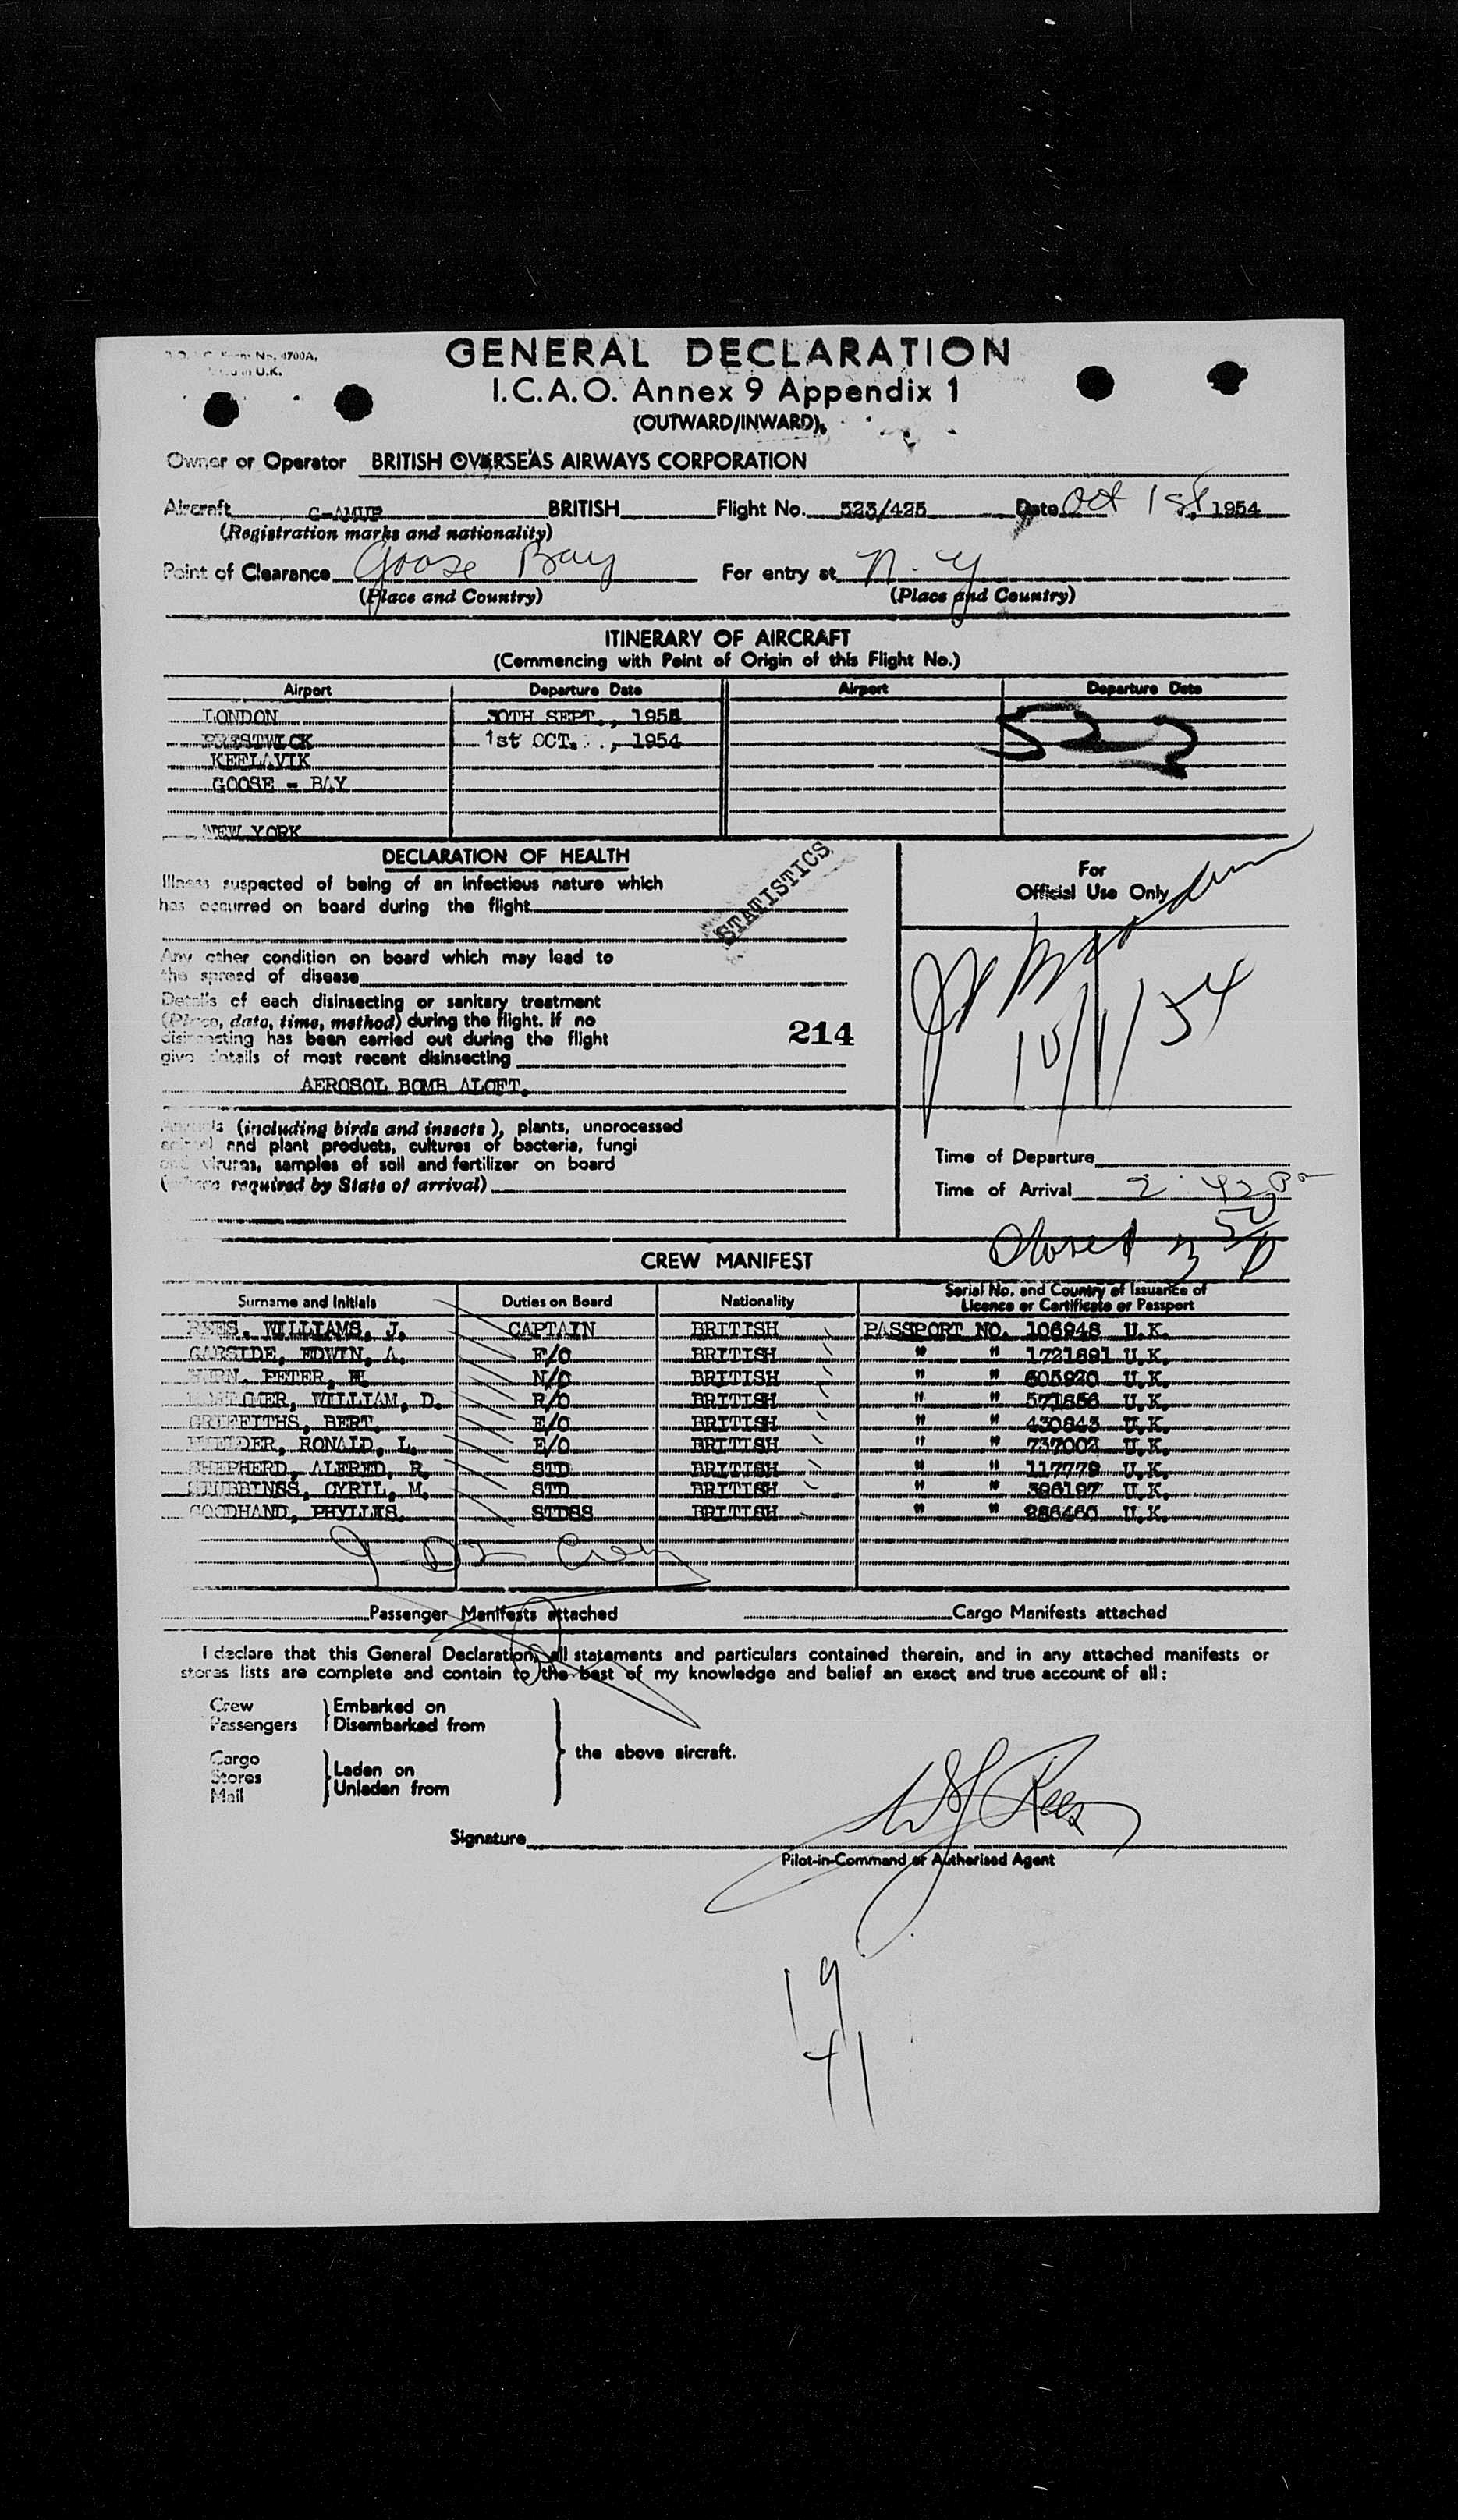 No. 4700A,
in U.K.
GENERAL DECLARATION
I.C.A.O. Annex 9 Appendix 1
(OUTWARD/INWARD)
Owner or Operator BRITISH OVERSEAS AIRWAYS CORPORATION
Aircraft G-AMUP BRITISH Flight No. 523/425 Date Oct 1st, 1954
(Registration marks and nationality)
Point of Clearance Goose Bay For entry at N. Y
(Place and Country) (Place and Country)
ITINERARY OF AIRCRAFT
(Commencing with Point of Origin of this Flight No.)
Airport Departure Date Airport Departure Date
LONDON 30TH SEPT., 1954
PRESTWICK 1st OCT., 1954
KEFLAVIK
GOOSE - BAY
NEW YORK
522
DECLARATION OF HEALTH
STATISTICS
For
Official Use Only
Illness suspected of being of an infectious nature which
has occurred on board during the flight
Any other condition on board which may lead to
the spread of disease
Details of each disinsecting or sanitary treatment
(Place, date, time, method) during the flight. If no
disinsecting has been carried out during the flight
give details of most recent disinsecting
214
10/1/54
AEROSOL BOMB ALOFT.
Animals (including birds and insects), plants, unprocessed
animal and plant products, cultures of bacteria, fungi
and viruses, samples of soil and fertilizer on board
(where required by State of arrival)
Time of Departure
Time of Arrival 2:42 Pm
Closed 3 50 P
CREW MANIFEST
Surname and Initials Duties on Board Nationality Serial No. and Country of Issuance of Licence or Certificate or Passport
REES, WILLIAMS, J. CAPTAIN BRITISH PASSPORT NO. 106948 U.K.
GARSIDE, EDWIN, A. F/O BRITISH " " 1721691 U.K.
PETER, N/O BRITISH " " 605920 U.K.
WILLIAM, D. R/O BRITISH " " 571856 U.K.
GRIFFITHS, BERT. E/O BRITISH " " 430843 U.K.
RONALD, L. E/O BRITISH " " 737002 U.K.
SHEPHERD, ALFRED, R. STD BRITISH " " 117779 U.K.
STUBBINGS, CYRIL, M. STD BRITISH " " 396197 U.K.
GOODHAND, PHYLLIS. STDSS BRITISH " " 286460 U.K.
Crew
Passenger Manifests attached Cargo Manifests attached
I declare that this General Declaration, all statements and particulars contained therein, and in any attached manifests or
stores lists are complete and contain to the best of my knowledge and belief an exact and true account of all:
Crew Embarked on
Passengers Disembarked from
the above aircraft.
Cargo
Stores Laden on
Mail Unladen from
Signature WJ Rees
Pilot-in-Command or Authorised Agent
19
41